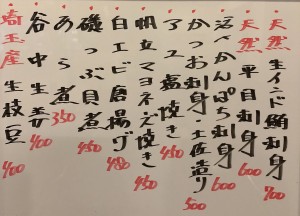 天然 生インド鮪刺身 700
天然 平目刺身 600
活〆かんぱち刺身 600
かつお刺身・土佐造り 500
アユ塩焼き 450
帆立マヨネーズ焼き 450
白エビ唐揚げ 480
磯つぶ貝煮 450
あら煮 350
谷中生姜 400
埼玉産 生枝豆 400